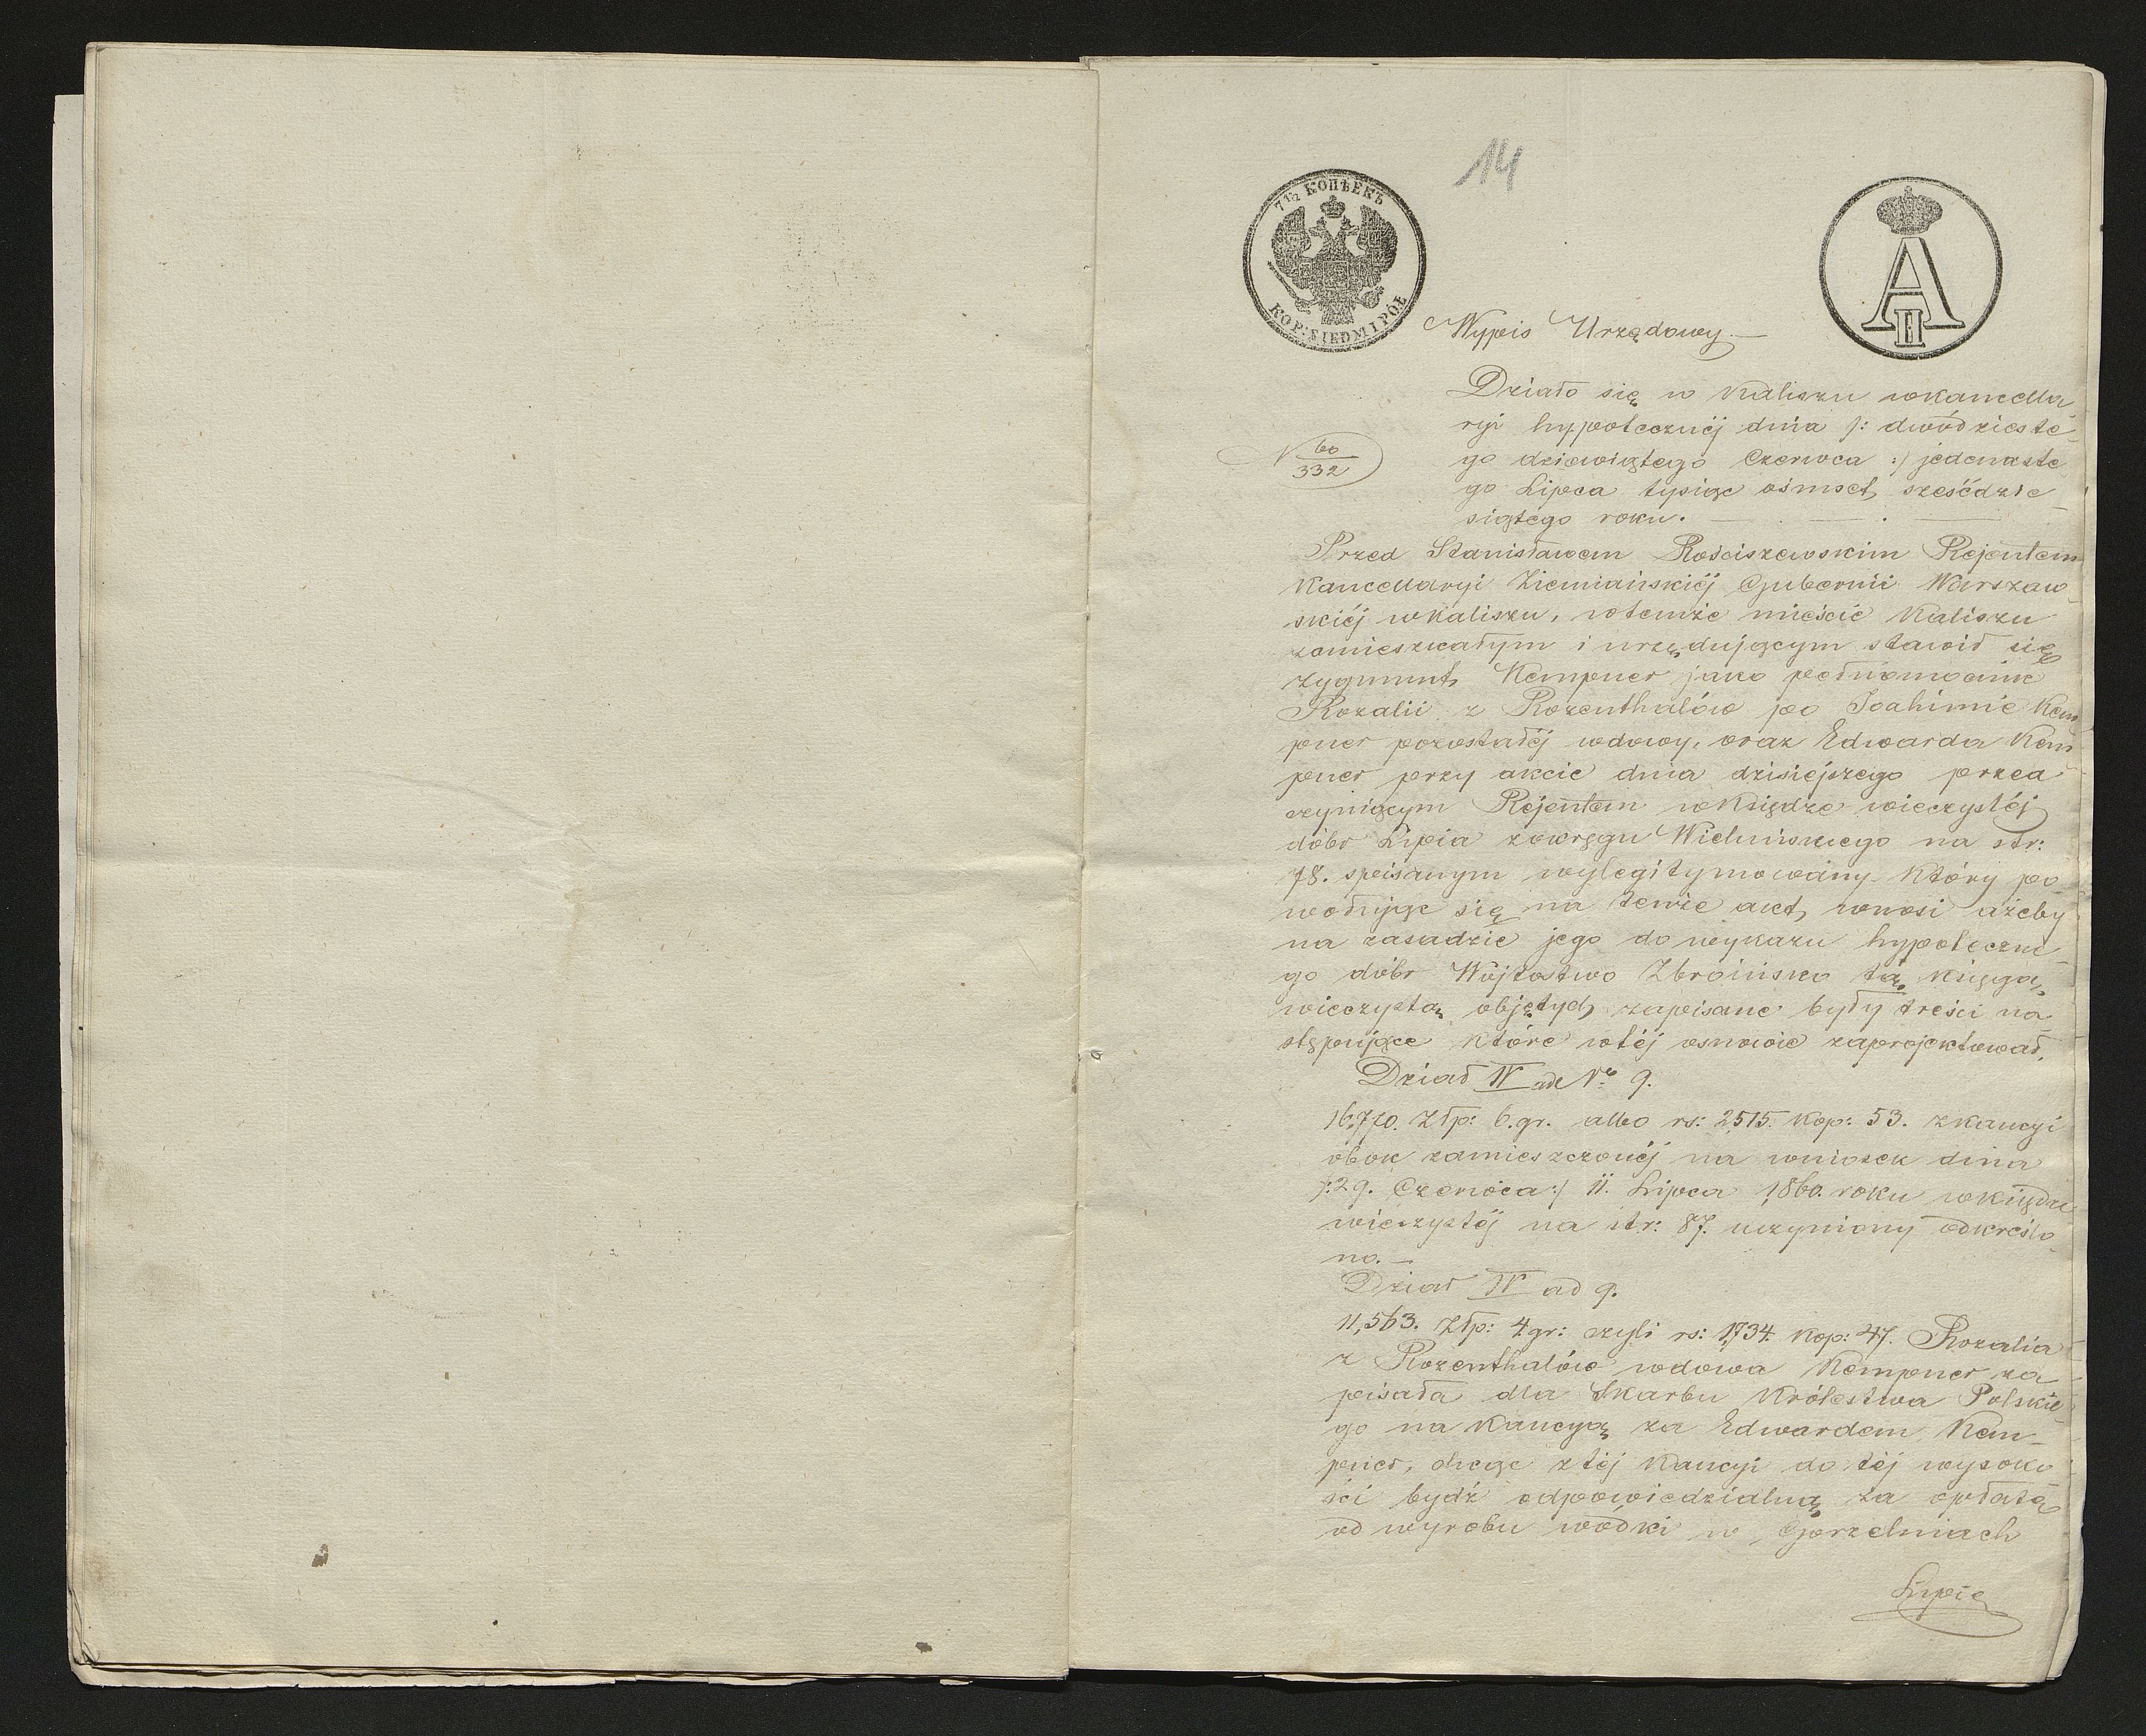 14
7 1/2 КОПѢЕКЪ
KOP: SIEDM I PÓŁ
A II
Wypis Urzędowy
Działo się w Kaliszu wkancella
ryi hypotecznéj dnia /: dwódzieste
N 60/332
go dziewiątego Czerwca :/ jedenaste
go Lipca tysiąc ośmset sześćdzie
siątego roku.
Przed Stanisławem Rościszewskim Rejentem
Kancellaryi Ziemiańskiéj Gubernii Warszaw
skiéj wKaliszu, wtemże mieście Kaliszu
zamieszkałym i urzędującym stawił się
Zygmunt Kempner jako pełnomocnik
Rozalii z Rozenthalów po Joahimie Kem
pner pozostałéj wdowy, oraz Edwarda Kem
pner przy akcie dnia dzisiéjszego przed
czyniącym Rejentem wKsiędze wieczystéj
dóbr Lipia zokręgu Wieluńskiego na str:
78. spisanym wylegitymowany. Który po
wołując się na tenże akt, wnosi ażeby
na zasadzie jego do wykazu hypoteczne
go dóbr Wójtostwo Zbroińsko tą księgą
wieczystą objętych zapisane były treści na
stępujące które wtéj osnowie zaprojektował.
Dział IV ad No 9.
16,770. Złp: 6.gr. albo rs: 2515. kop: 53. zkaucyi
obok zamieszczonéj na wniosek dnia
/:29. Czerwca:/ 11. Lipca 1860. roku wksiędze
wieczystéj na str: 87. uczyniony odkreślo
no. —
Dział IV ad 9.
11,563. Złp: 4 gr: czyli rs: 1734. kop: 47. Rozalia
z Rozenthalów wdowa Kempner za
pisała dla Skarbu Królestwa Polskie
go na kaucyą za Edwardem Kem
pner, chcąc ztéj kaucyi do téj wysoko
ści bydź odpowiedzialną za opłatę
od wyrobu wódki w Gorzelniach
Lipie